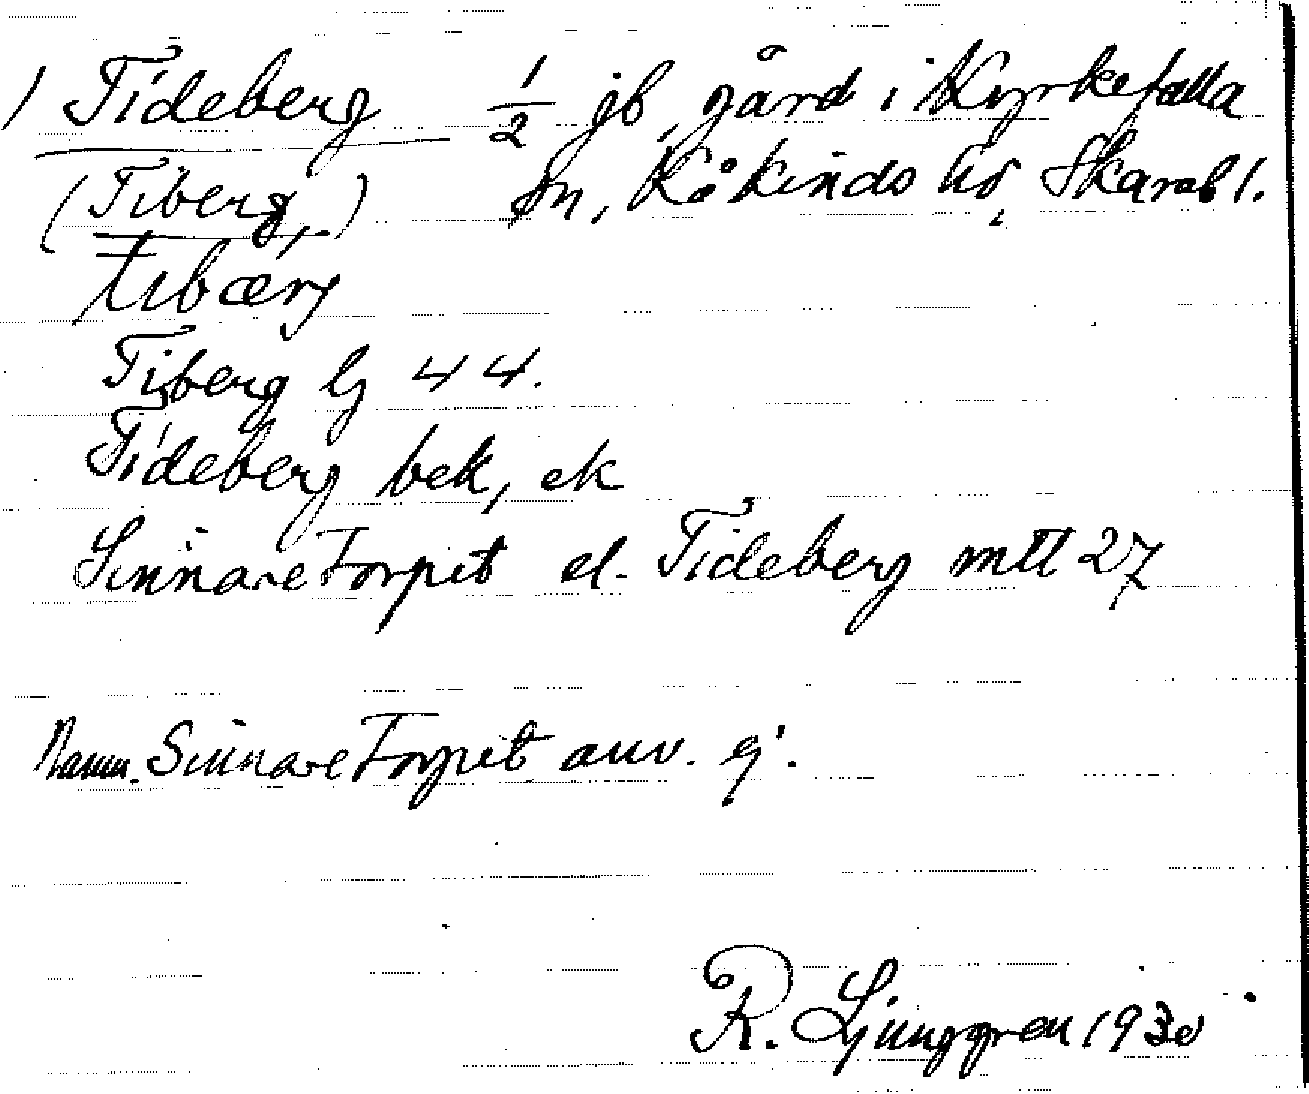 1 Tideberg 1/2 jb, gård i Kyrkefalla
(Tiberg,) sn, Kåkinds hd, Skarabl.
tibærj
Tijberg lj 44.
Tideberg bek, ek
Sinnaretorpet el. Tideberg mtl 27
Namn. Sinnaretorpet anv. ej.
R. Ljunggren 1930